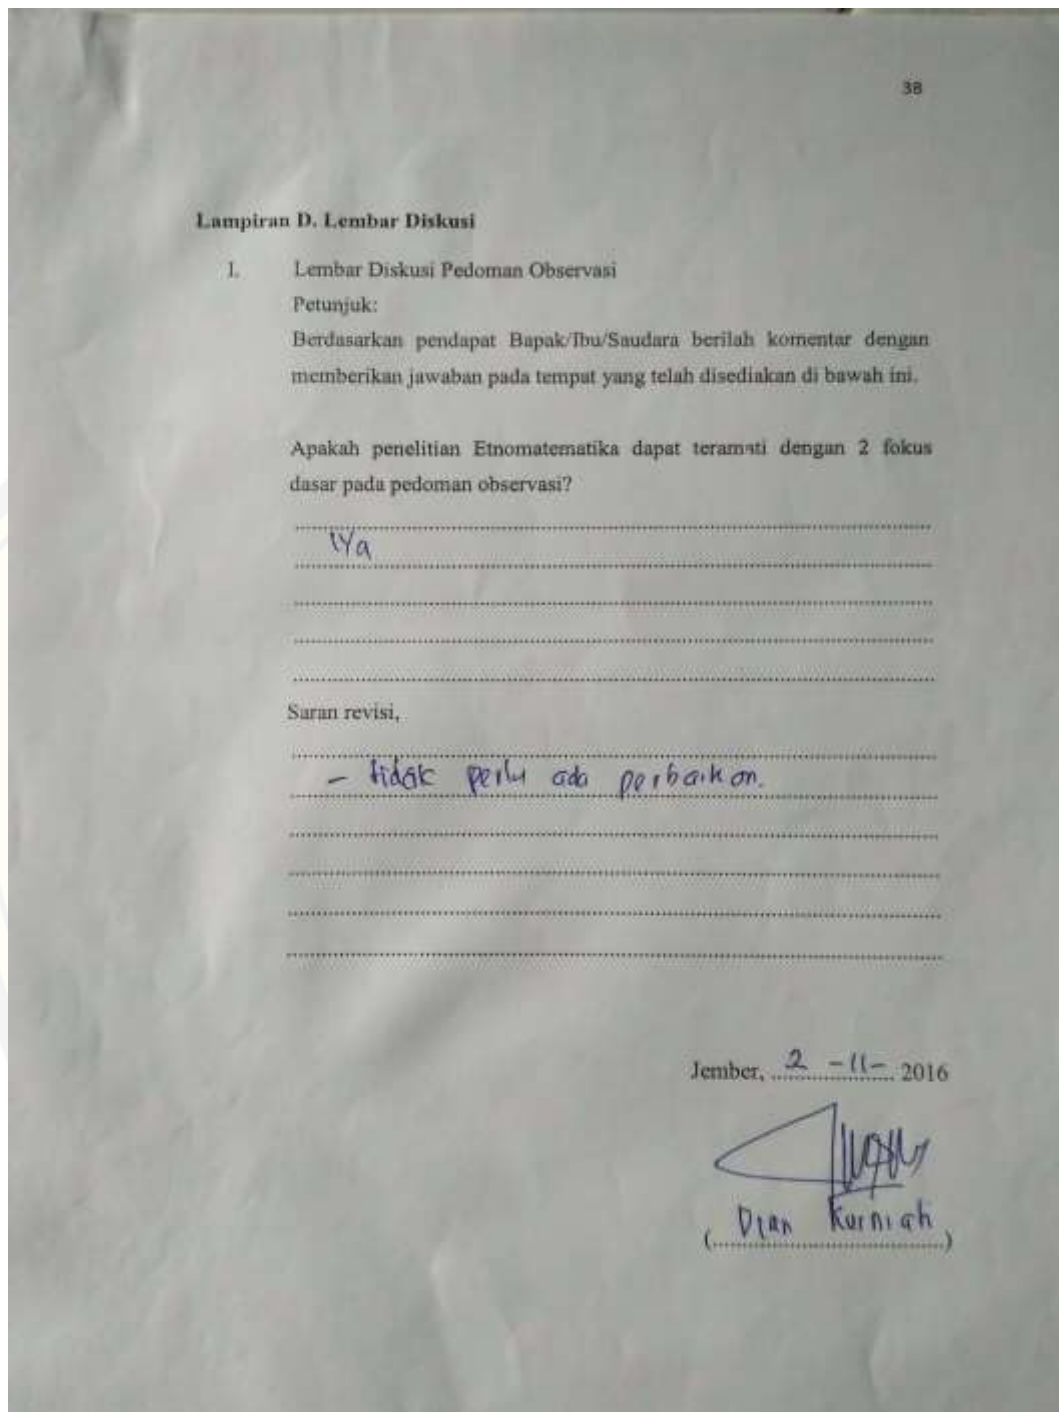 38
Lampiran D. Lembar Diskusi
1. Lembar Diskusi Pedoman Observasi
Petunjuk:
Berdasarkan pendapat Bapak/Ibu/Saudara berilah komentar dengan
memberikan jawaban pada tempat yang telah disediakan di bawah ini.
Apakah penelitian Etnomatematika dapat teramati dengan 2 fokus
dasar pada pedoman observasi?
iya
Saran revisi,
- tidak perlu ada perbaikan.
Jember, 2 -11- 2016
(Dian Kurniah)